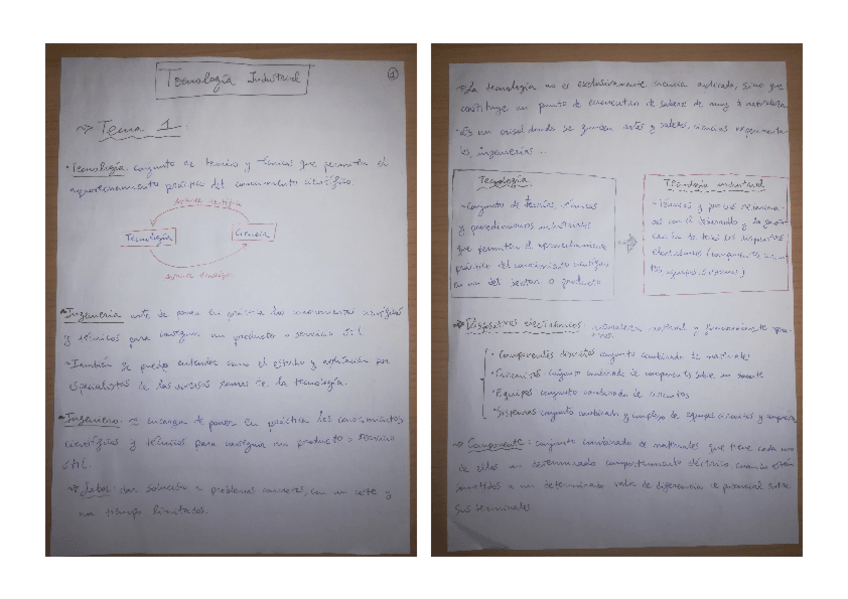 Tecnología Industrial
1
~> Tema 1.
• Tecnología: conjunto de teorías y técnicas que permiten el
aprovechamiento práctico del conocimiento científico.
Tecnología
Ciencia
• Ingeniería: arte de poner en práctica los conocimientos científicos
y técnicos para conseguir un producto o servicio útil.
También se puede entender como el estudio y aplicación por
especialistas de las diversas ramas de la tecnología.
• Ingeniero: se encarga de poner en práctica los conocimientos
científicos y técnicos para conseguir un producto o servicio
útil.
Labor: dar solución a problemas concretos, con un coste y
un tiempo limitados.
• La tecnología no es exclusivamente ciencia aplicada, sino que
constituye un punto de encuentro de saberes de muy naturaleza
• Es un crisol donde se funden artes y saberes, ciencias experimenta-
les, ingenierías ...
Tecnología
• Conjunto de teorías, técnicas
y procedimientos industriales
que permiten el aprovechamiento
práctico del conocimiento científico
en un del sector o producto
Tecnología industrial
• Técnicas y
con el desarrollo y la
de todos los dispositivos
electrónicos (componentes
equipos, sistemas)
~> Dispositivos electrónicos: naturaleza material y funcionamiento
• Componentes discretos conjunto combinado de materiales
• Circuitos conjunto combinado de componentes sobre un soporte
• Equipos conjunto combinado de circuitos
• Sistemas conjunto combinado y complejo de equipos circuitos y componentes
~> Componente: conjunto combinado de materiales que tiene cada uno
de ellos un determinado comportamiento eléctrico cuando están
sometidos a un determinado valor de diferencia de potencial sobre
sus terminales.